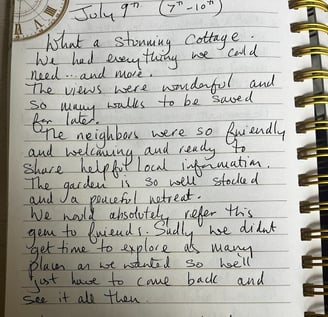 July 9th (7th - 10th)
What a Stunning Cottage.
We had everything we could
need ... and more.
The views were wonderful and
so many walks to be saved
for later.
The neighbors were so friendly
and welcoming and ready to
share helpful local information.
The garden is so well stocked
and a peaceful retreat.
We would absolutely refer this
gem to friends. Sadly we didnt
get time to explore as many
places as we wanted so well
just have to come back and
see it all then.